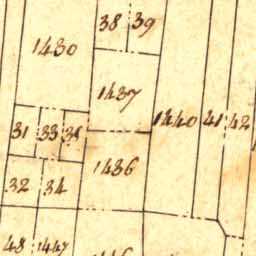 38 39
1430
1437
1440 41 42
31 33 35
1436
32 34
48 1447